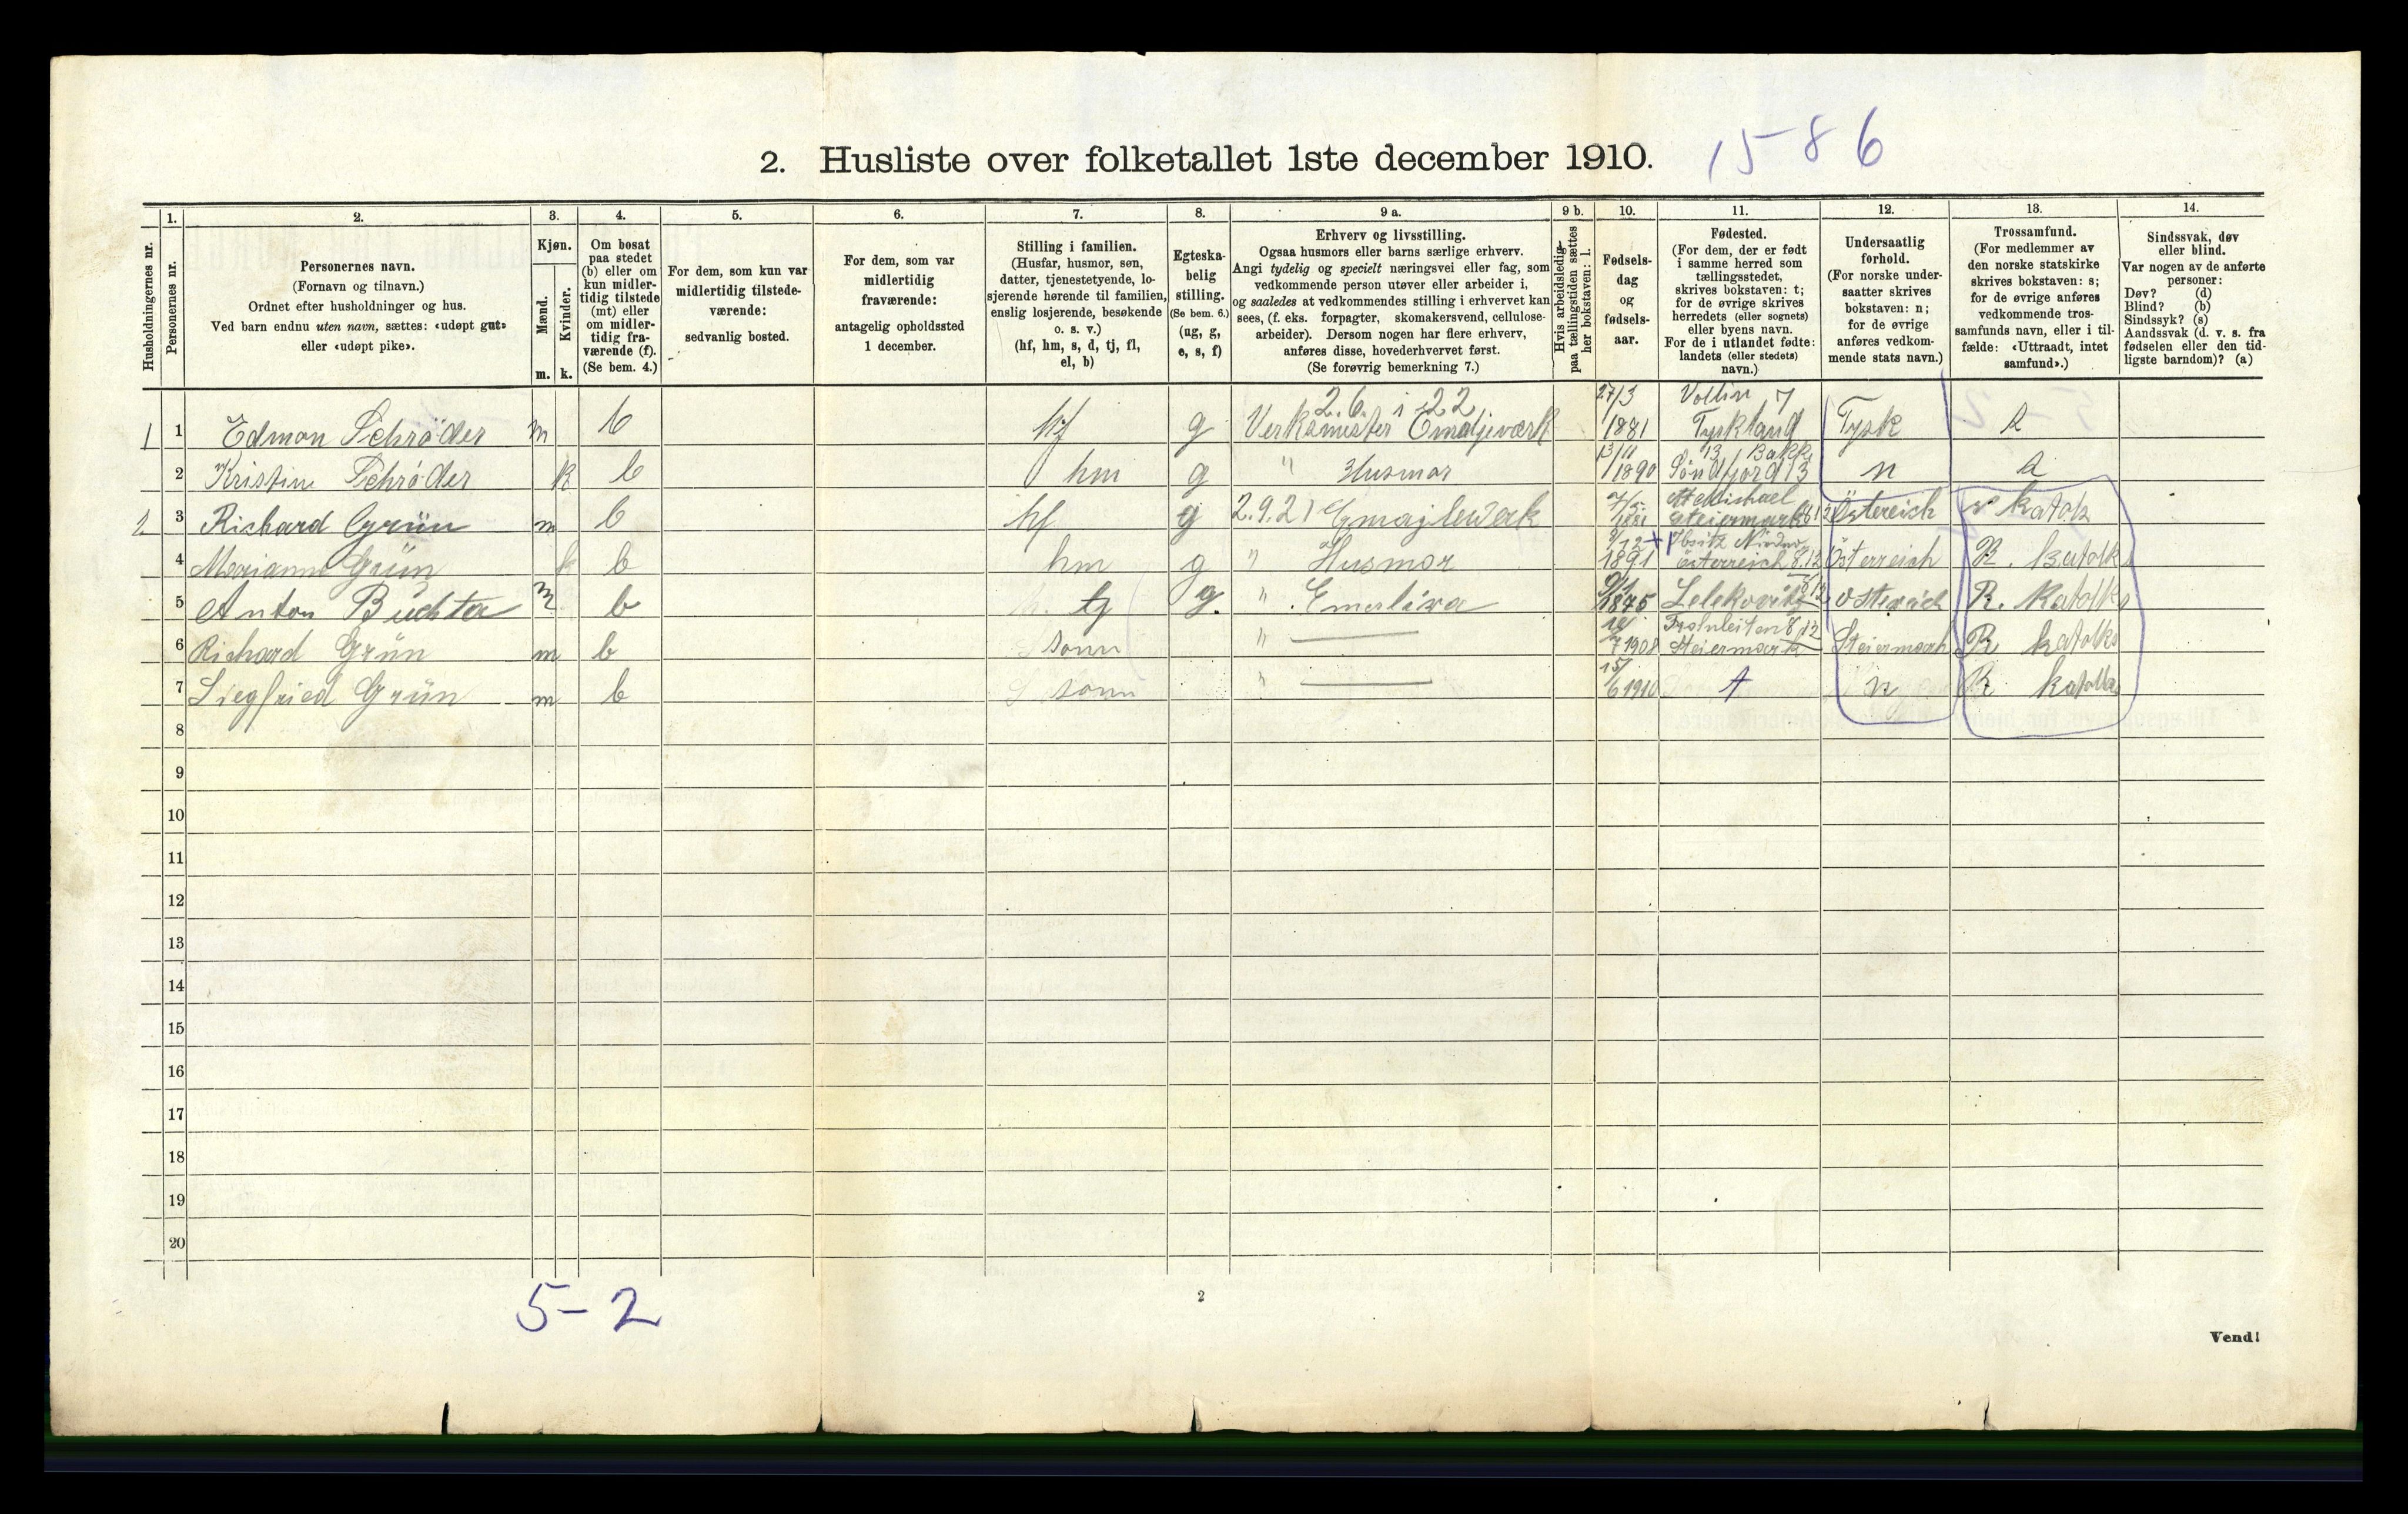 2. Husliste over folketallet 1ste december 1910. 1586
Husholdningernes nr.
1.
Personernes nr.
2.
Personernes navn.
(Fornavn og tilnavn.)
Ordnet efter husholdninger og hus.
Ved barn endnu uten navn, sættes: «udøpt gut»
eller «udøpt pike».
3.
Kjøn.
Mænd.
Kvinder.
m. k.
4.
Om bosat
paa stedet
(b) eller om
kun midler-
tidig tilstede
(mt) eller
om midler-
tidig fra-
værende (f).
(Se bem. 4.)
5.
For dem, som kun var
midlertidig tilstede-
værende:
sedvanlig bosted.
6.
For dem, som var
midlertidig
fraværende:
antagelig opholdssted
1 december.
7.
Stilling i familien.
(Husfar, husmor, søn,
datter, tjenestetyende, lo-
sjerende hørende til familien,
enslig losjerende, besøkende
o. s. v.)
(hf, hm, s, d, tj, fl,
el, b)
8.
Egteska-
belig
stilling.
(Se bem. 6.)
(ug, g,
e, s, f)
9 a.
Erhverv og livsstilling.
Ogsaa husmors eller barns særlige erhverv.
Angi tydelig og specielt næringsvei eller fag, som
vedkommende person utøver eller arbeider i,
og saaledes at vedkommendes stilling i erhvervet kan
sees, (f. eks. forpagter, skomakersvend, cellulose-
arbeider). Dersom nogen har flere erhverv,
anføres disse, hovederhvervet først.
(Se forøvrig bemerkning 7.)
9 b.
Hvis arbeidsledig
paa tællingstiden sættes
her bokstaven: l.
10.
Fødsels-
dag
og
fødsels-
aar.
11.
Fødested.
(For dem, der er født
i samme herred som
tællingsstedet,
skrives bokstaven: t;
for de øvrige skrives
herredets (eller sognets)
eller byens navn.
For de i utlandet fødte:
landets (eller stedets)
navn.)
12.
Undersaatlig
forhold.
(For norske under-
saatter skrives
bokstaven: n;
for de øvrige
anføres vedkom-
mende stats navn.)
13.
Trossamfund.
(For medlemmer av
den norske statskirke
skrives bokstaven: s;
for de øvrige anføres
vedkommende tros-
samfunds navn, eller i til-
fælde: «Uttraadt, intet
samfund».)
14.
Sindssvak, døv
eller blind.
Var nogen av de anførte
personer:
Døv? (d)
Blind? (b)
Sindssyk? (s)
Aandssvak (d. v. s. fra
fødselen eller den tid-
ligste barndom)? (a)
2.6. i 22 27/3 Vollin 7
1 1 Edmon Schröder m b hf g Verksmester Emaljeværk 1881 Tyskland Tysk s
13/11 13 Bakk
2 Kristine Schröder k b hm g " Husmor 1890 Söndfjord 13 n s
St Michael
2 3 Richard Grün m b hf g 2.9.21 Emajlewerk 1881 Steiermark 8.12 Östereich r katolk
4 Marianne Grün k b hm g " Husmor 1891 österreich 8.12 Österreich R. Katolks
5 Anton Buchta m b g. " 1875 Lelekovitz R. Katolks
Frohnleiten 8/12
6 Richard Grün m b sonn " 7 1908 Steiermark Steiermark R katolks
15/
7 Siegfried Grün m b sonn " 6 1910 t n R katolks
8
9
10
11
12
13
14
15
16
17
18
19
20
5-2
2
Vend!